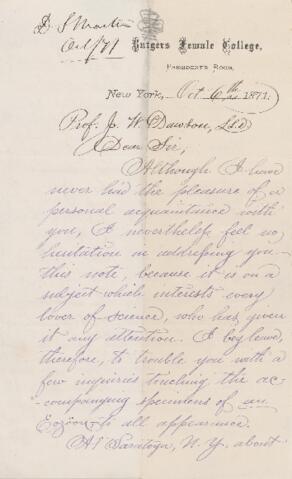 D S Martin
Oct/71
Rutgers Female College,
President's Room.
New York, Oct 6th 1871.
Prof. J. W. Dawson, LL.D
Dear Sir,
Although I have
never had the pleasure of a
personal acquaintance with
you, I nevertheless feel no
hesitation in addressing you
this note, because it is on a
subject which interests every
lover of science, who has given
it any attention. I beg leave,
therefore, to trouble you with a
few inquiries touching the ac-
companying specimens of an
Eozöon to all appearance.
At Saratoga, N. Y. about